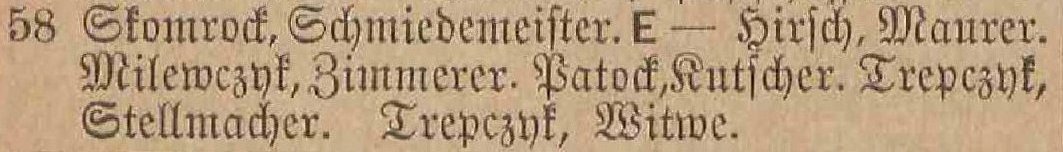 58 Skomrock, Schmiedemeister. E — Hirsch, Maurer.
Milewczyk, Zimmerer. Patock, Kutscher. Trepczyk,
Stellmacher. Trepczyk, Witwe.